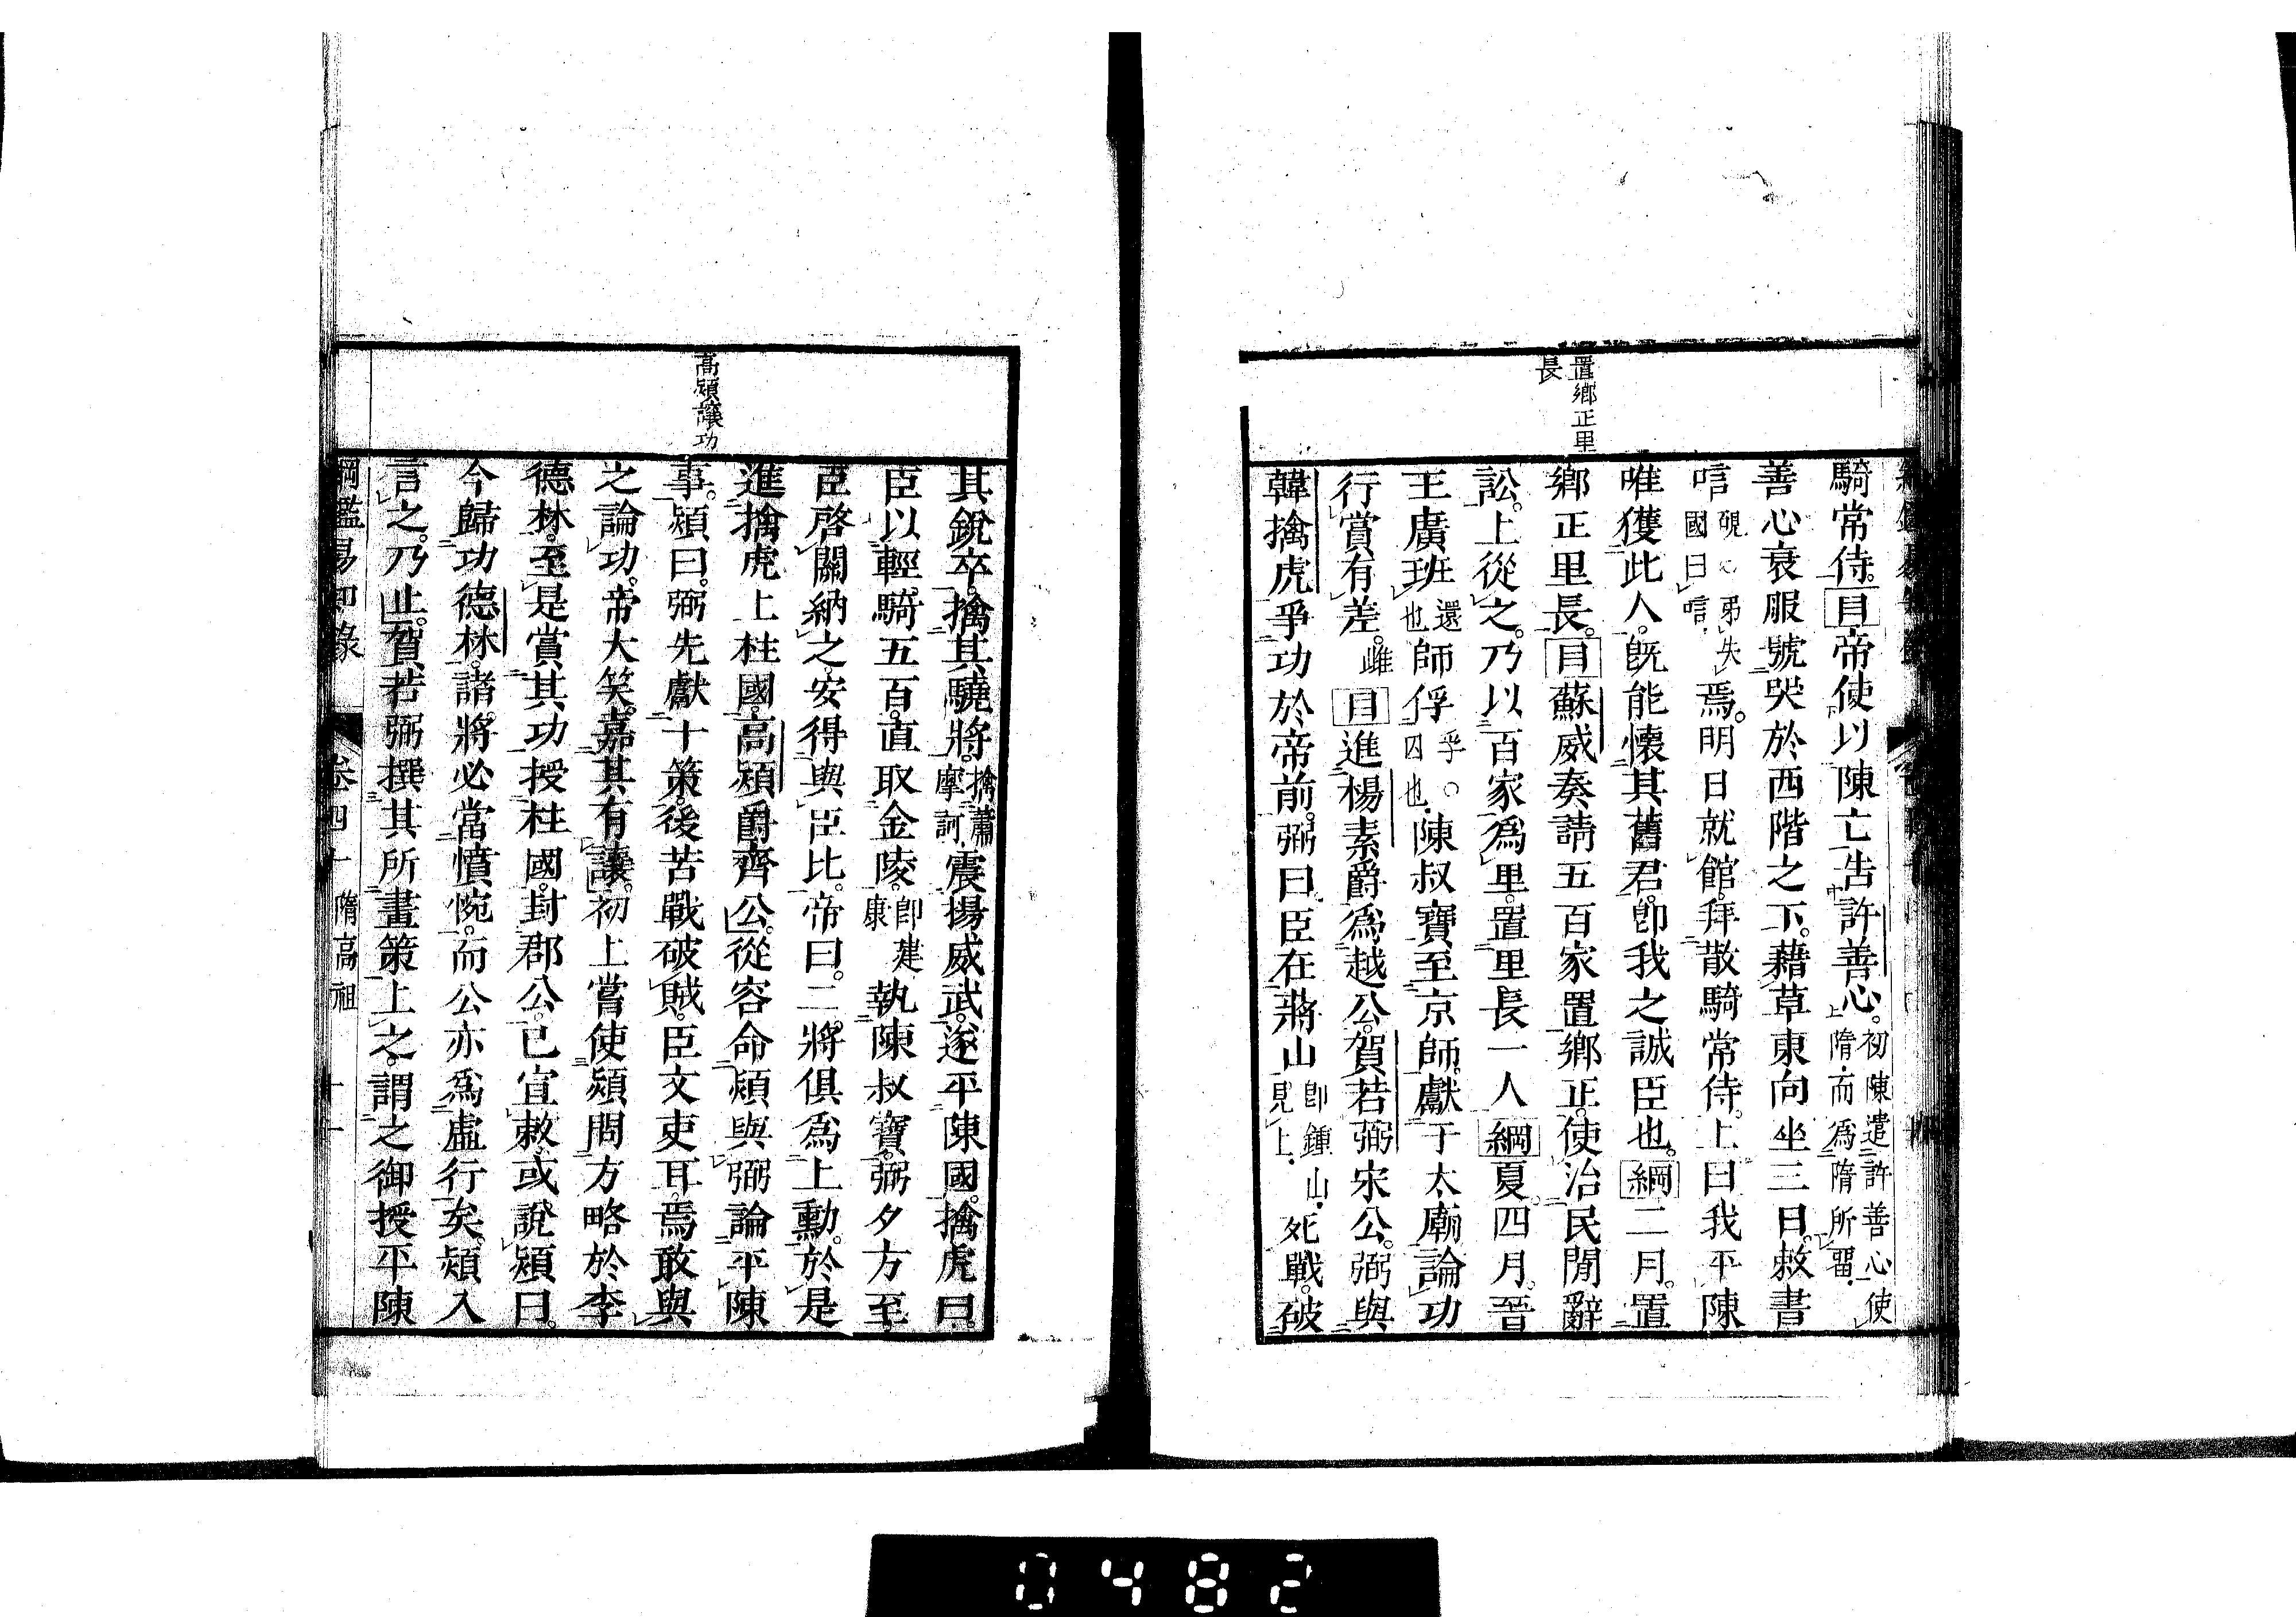 置鄉正里
長
騎常侍。目帝使以陳亡告許善心。初陳遣許善心使上隋而爲隋所留
善心衰服號哭於西階之下。藉草東向坐三日。敕書
唁國曰唁焉。明日就館。拜散騎常侍。上曰我平陳
唯獲此人。旣能懷其舊君。卽我之誠臣也。綱二月。置
鄉正里長。目蘇威奏請五百家置鄉正。使治民閒辭
訟。上從之。乃以百家爲里。置里長一人綱夏。四月。晉
王廣班還也師俘孚○囚也陳叔寶至京師。獻于太廟論功
行賞有差。雌目進楊素爵爲越公。賀若弼宋公。弼與
韓擒虎爭功於帝前。弼曰臣在蔣山卽鍾山見上死戰。破
高熲讓功
其銳卒。擒其驍將。擒蕭摩訶震揚威武。遂平陳國。擒虎曰。
臣以輕騎五百。直取金陵。卽建康執陳叔寶。弼夕方至。
臣啓關納之。安得與臣比。帝曰。二將俱爲上勳。於是
進擒虎上柱國。高熲爵齊公。從容命熲與弼論平陳
事。熲曰。弼先獻十策。後苦戰破賊。臣文吏耳。焉敢與
之論功。帝大笑。嘉其有讓。初上嘗使熲問方略於李
德林。至是賞其功授柱國。封郡公。已宣敕。或說熲曰。
今歸功德林。諸將必當憤惋。而公亦爲虛行矣。熲入
言之。乃止。賀若弼撰其所畫策上之。謂之御授平陳
綱鑑易知錄 卷四十 隋高祖 十一
0482